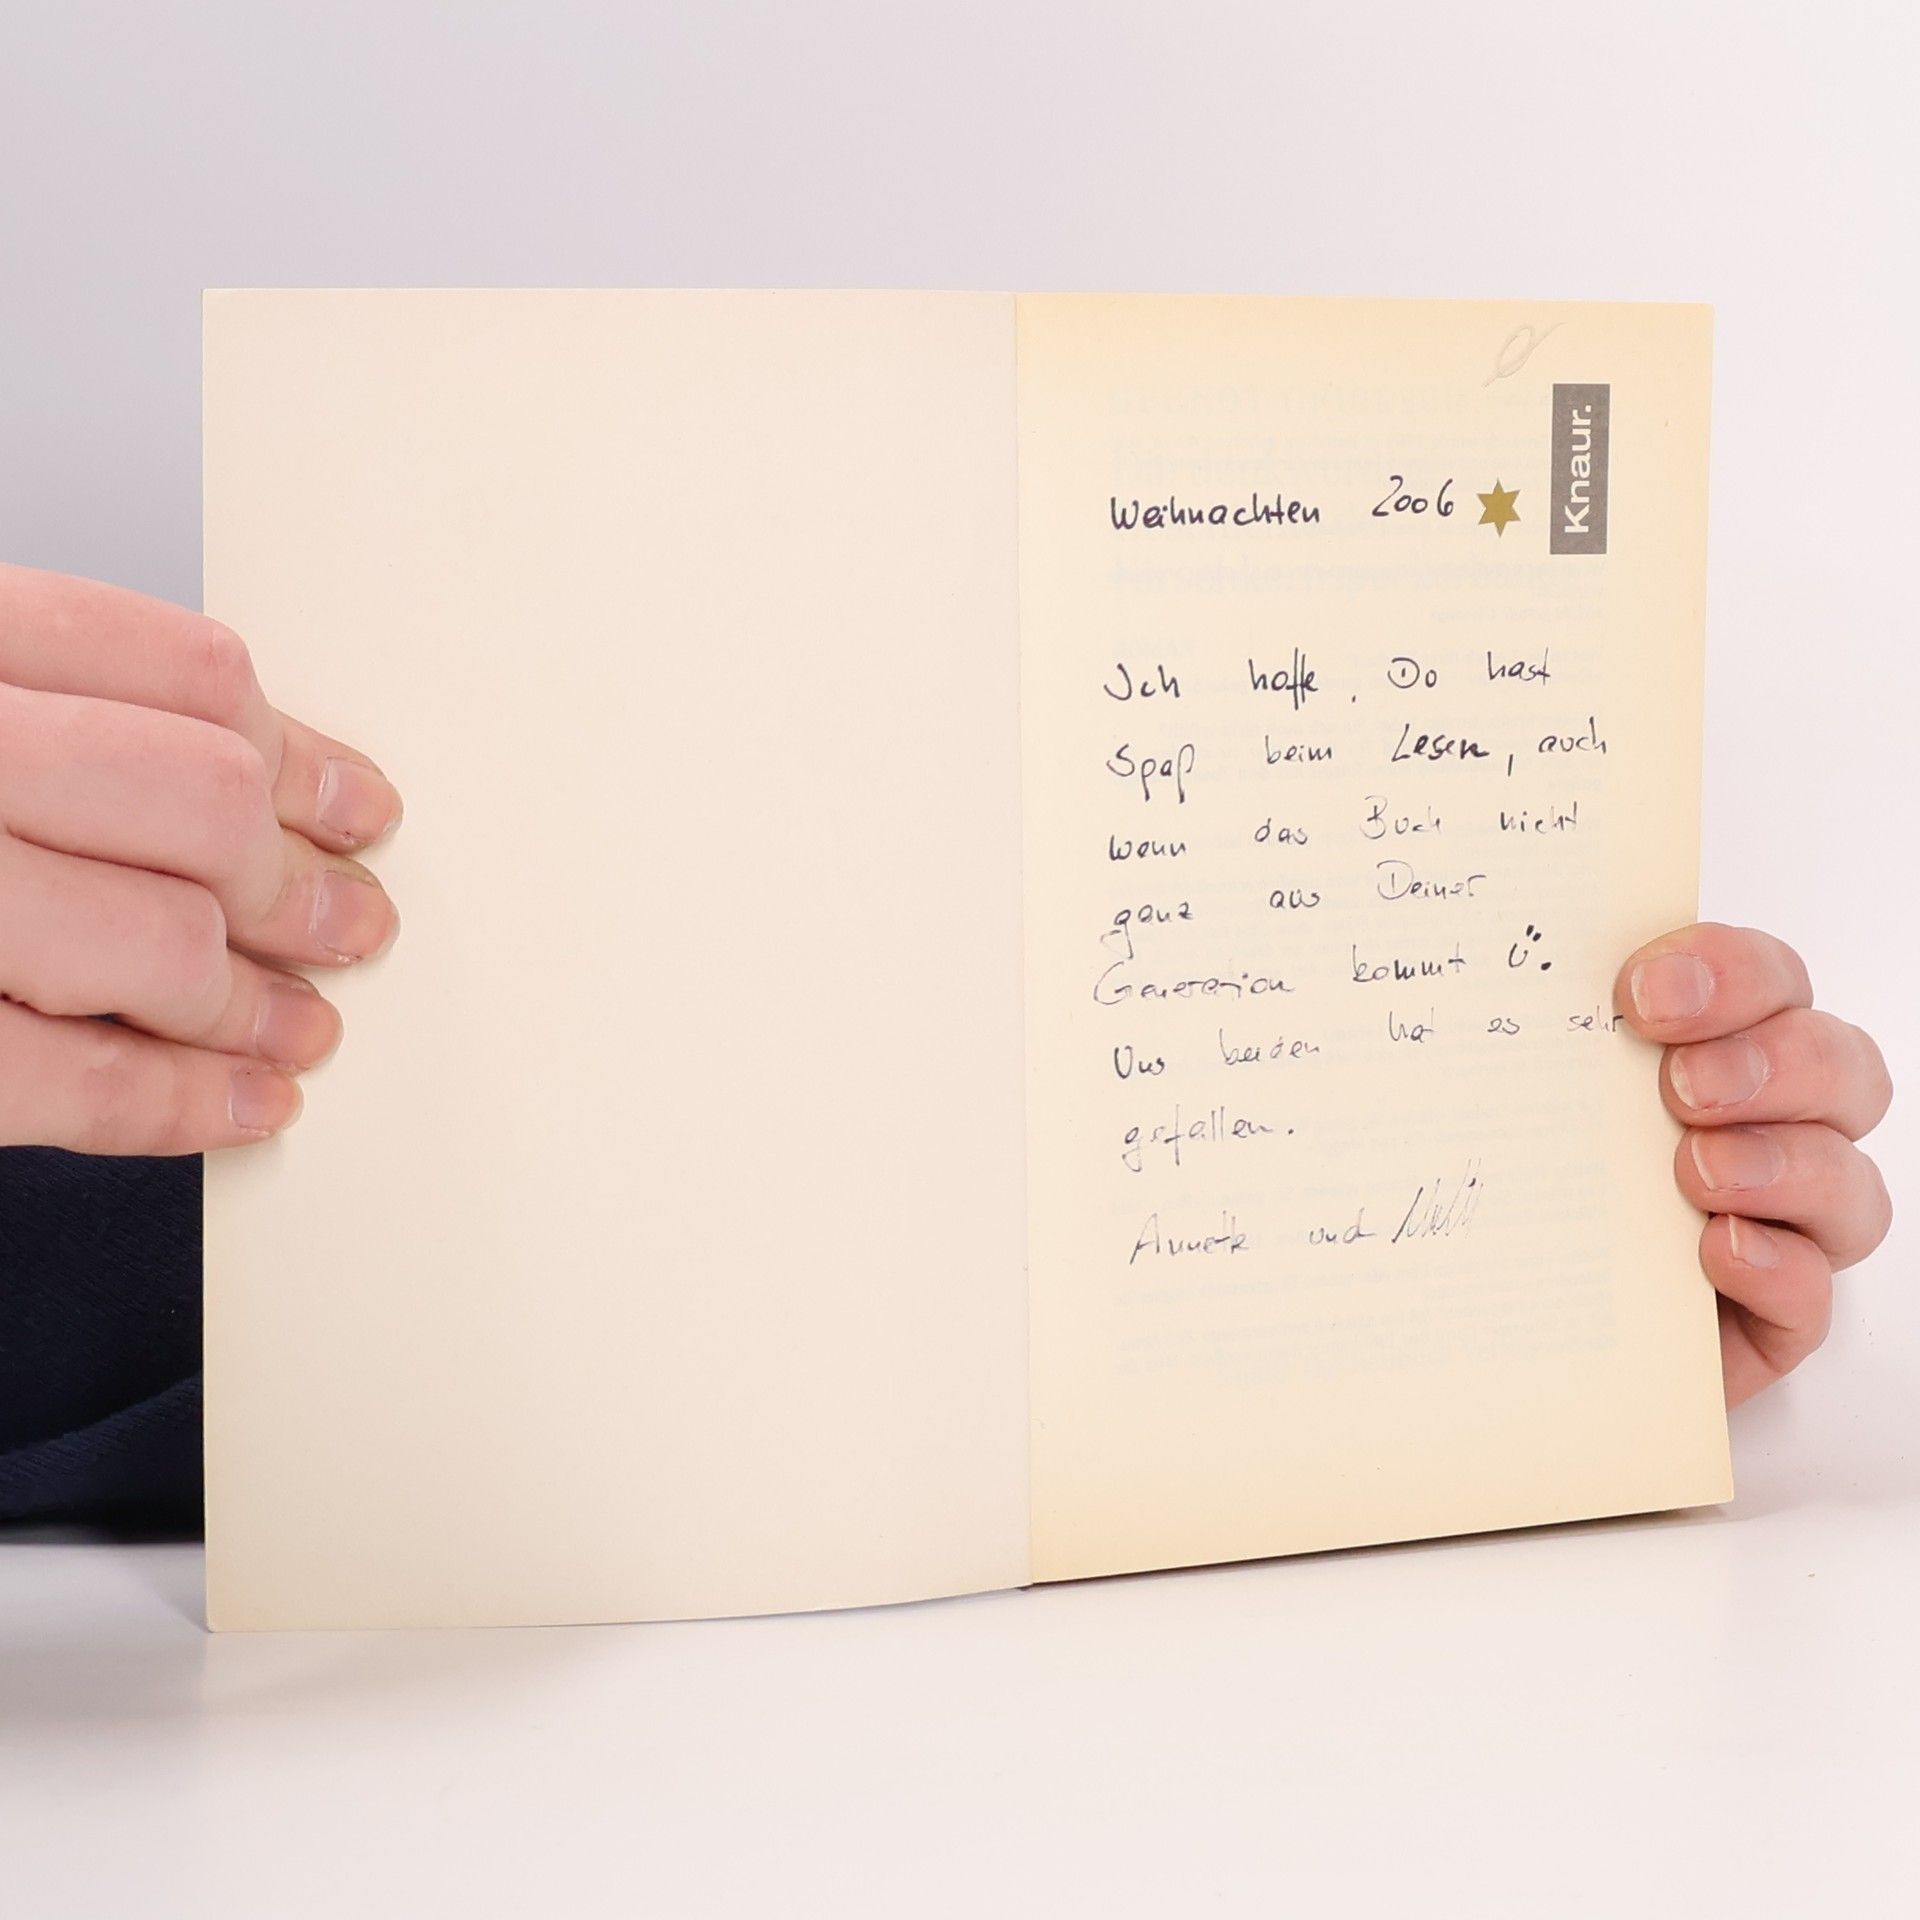 Knaur.
Weihnachten 2006
Ich hoffe, Du hast
Spaß beim Lesen, auch
wenn das Buch nicht
ganz aus Deiner
Generation kommt Ü.
Uns beiden hat es sehr
gefallen.
Annette und